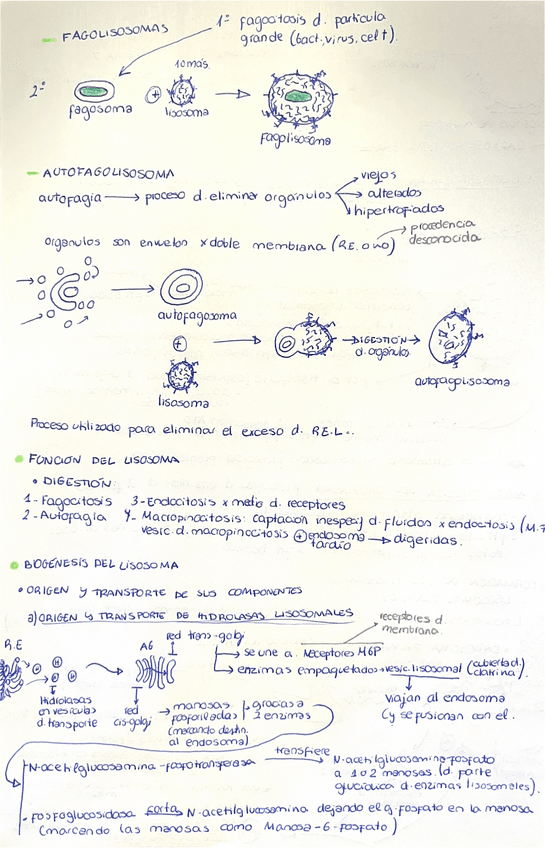 - FAGOLISOSOMAS
1º fagocitosis d. partícula
grande (bact, virus, cel t).
2º
1 o más
fagosoma + lisosoma → fagolisosoma
- AUTOFAGOLISOSOMA
autofagia → proceso d. eliminar orgánulos
viejos
alterados
hipertrofiados
orgánulos son envueltos x doble membrana (R.E. o no)
procedencia
desconocida
autofagosoma
+
lisosoma
DIGESTIÓN
d. orgánulos
autofagolisosoma
Proceso utilizado para eliminar el exceso d. R.E.L..
FUNCIÓN DEL LISOSOMA
• DIGESTIÓN:
1- Fagocitosis 3- Endocitosis x medio d. receptores
2- Autofagia 4- Macropinocitosis: captación inespecif d. fluidos x endocitosis (M.F
vesic. d. macropinocitosis + endosoma → digeridas.
tardío
BIOGÉNESIS DEL LISOSOMA
• ORIGEN Y TRANSPORTE DE SUS COMPONENTES
a) ORIGEN Y TRANSPORTE DE HIDROLASAS LISOSOMALES
receptores d.
membrana.
R.E
H H H H
AG
red trans-golgi
→ se une a. Receptores M6P
→ enzimas empaquetadas → vesic. lisosomal (cubierta d. clatrina).
Hidrolasas
en vesículas
d. transporte
red
cis-golgi
→ manosas
fosforiladas
(marcando destin.
al endosoma)
gracias a
2 enzimas
viajan al endosoma
(y se fusionan con el.
N-acetilglucosamina-fosfotransferasa
transfiere
N-acetilglucosamina-fosfato
a 1 o 2 manosas. (d. parte
glucídica d. enzimas lisosomales).
• fosfoglucosidasa corta N-acetilglucosamina dejando el g. fosfato en la manosa
(marcando las manosas como Manosa-6-fosfato)